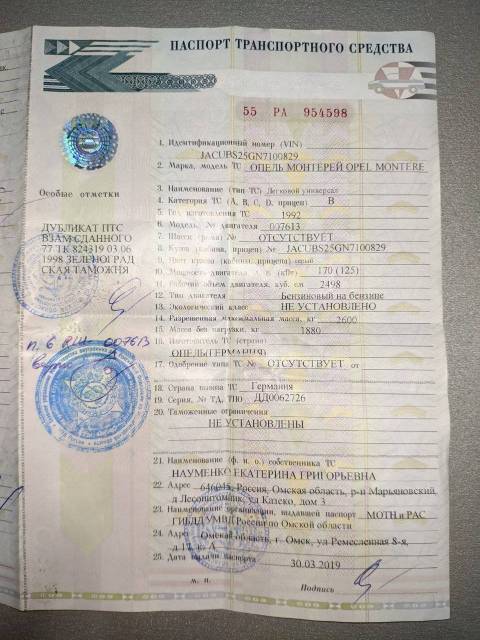 ПАСПОРТ ТРАНСПОРТНОГО СРЕДСТВА
55 РА 954598
1. Идентификационный номер (VIN)
JACUBS25GN7100829
2. Марка, модель ТС ОПЕЛЬ МОНТЕРЕЙ OPEL MONTERE
3. Наименование (тип ТС) Легковой универсал
4. Категория ТС (А, В, С, D, прицеп) В
5. Год изготовления ТС 1992
6. Модель, № двигателя 007613
7. Шасси (рама) № ОТСУТСТВУЕТ
8. Кузов (кабина, прицеп) № JACUBS25GN7100829
9. Цвет кузова (кабины, прицепа) серый
10. Мощность двигателя, л. с. (кВт) 170 (125)
11. Рабочий объем двигателя, куб. см 2498
12. Тип двигателя Бензиновый на бензине
13. Экологический класс НЕ УСТАНОВЛЕНО
14. Разрешенная максимальная масса, кг 2600
15. Масса без нагрузки, кг 1880
16. Изготовитель ТС (страна)
ОПЕЛЬ(ГЕРМАНИЯ)
17. Одобрение типа ТС № ОТСУТСТВУЕТ от
18. Страна вывоза ТС Германия
19. Серия, № ТД, ТПО ДД0062726
20. Таможенные ограничения
НЕ УСТАНОВЛЕНЫ
21. Наименование (ф. и. о.) собственника ТС
НАУМЕНКО ЕКАТЕРИНА ГРИГОРЬЕВНА
22. Адрес Россия, Омская область, р-н Марьяновский,
дом 3
23. Наименование организации, выдавшей паспорт МОТН и РАС
ГИБДД УМВД России по Омской области
24. Адрес Омская область, г Омск, ул Ремесленная 8-я,
25. Дата выдачи паспорта 30.03.2019
м. п. Подпись
Особые отметки
ДУБЛИКАТ ПТС
ВЗАМ СДАННОГО
77 ТК 824319 03 06
1998 ЗЕЛЕНОГРАД
СКАЯ ТАМОЖНЯ
п. 6 007613